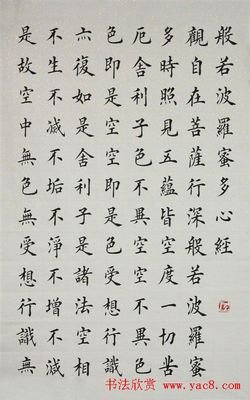 般若波羅蜜多心經
觀自在菩薩行深般若波羅蜜
多時照見五蘊皆空度一切苦
厄舍利子色不異空空不異色
色即是空空即是色受想行識
亦復如是舍利子是諸法空相
不生不滅不垢不淨不增不減
是故空中無色無受想行識無
书法欣赏
www.yac8.com